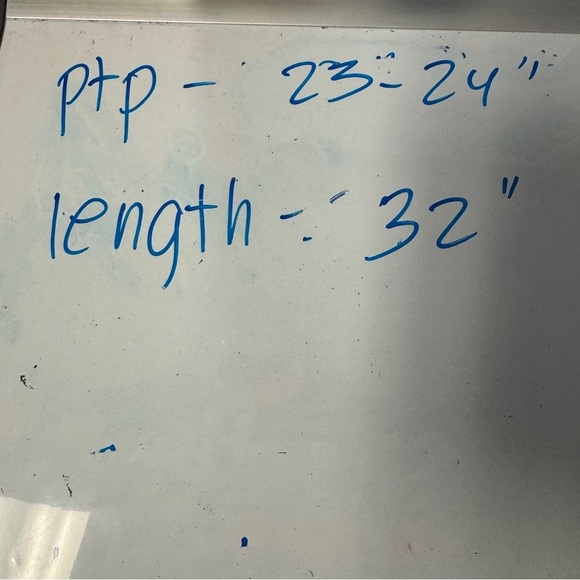 ptp - 23-24"
length - 32"